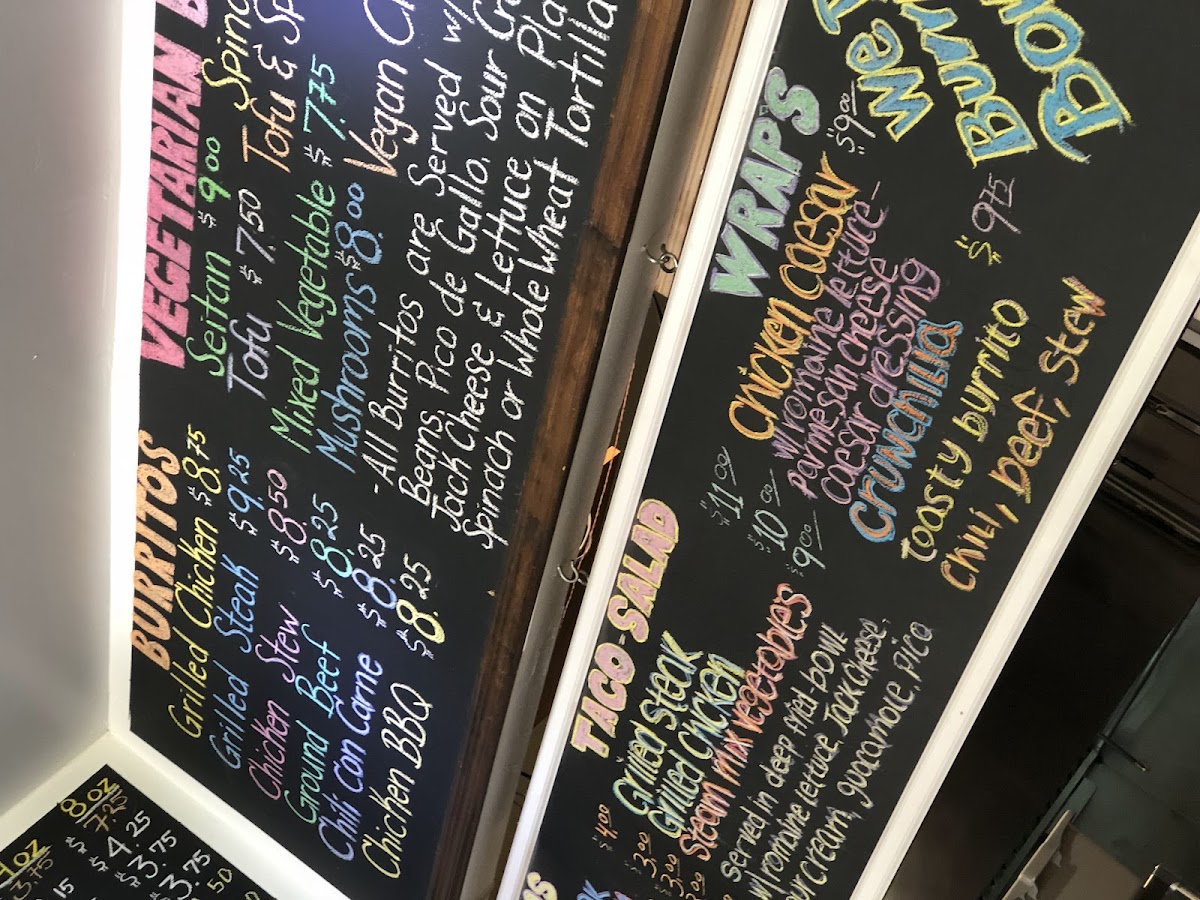 BURRITOS
Grilled Chicken $8.75
Grilled Steak $9.25
Chicken Stew $8.50
Ground Beef $8.25
Chili Con Carne $8.25
Chicken BBQ $8.25
VEGETARIAN B
Seitan $9.00
Tofu $7.50
Mixed Vegetable $7.75
Mushrooms $8.00
Spina
Tofu & Sp
Vegan C
- All Burritos are Served w/
Beans, Pico de Gallo, Sour Cr
Jack Cheese & Lettuce on Pla
Spinach or Whole Wheat Tortilla
8 oz
7.20
$4.25
$3.75
$3.75
50
4 oz
3.75
15
TACO-SALAD
Grilled Steak $11.00
Grilled Chicken $10.00
Steam mix vegetables $9.00
served in deep fried bowl
w/romaine lettuce, Jack cheese,
our cream, guacamole, pico
$4.00
3.00
$3.00
WRAP'S
Chicken Caesar $9.00
w/romaine lettuce-
parmesan cheese
caesar dressing
Crunchilla $9.75
Toasty burrito
Chili, beef, stew
We
Burr
Bo